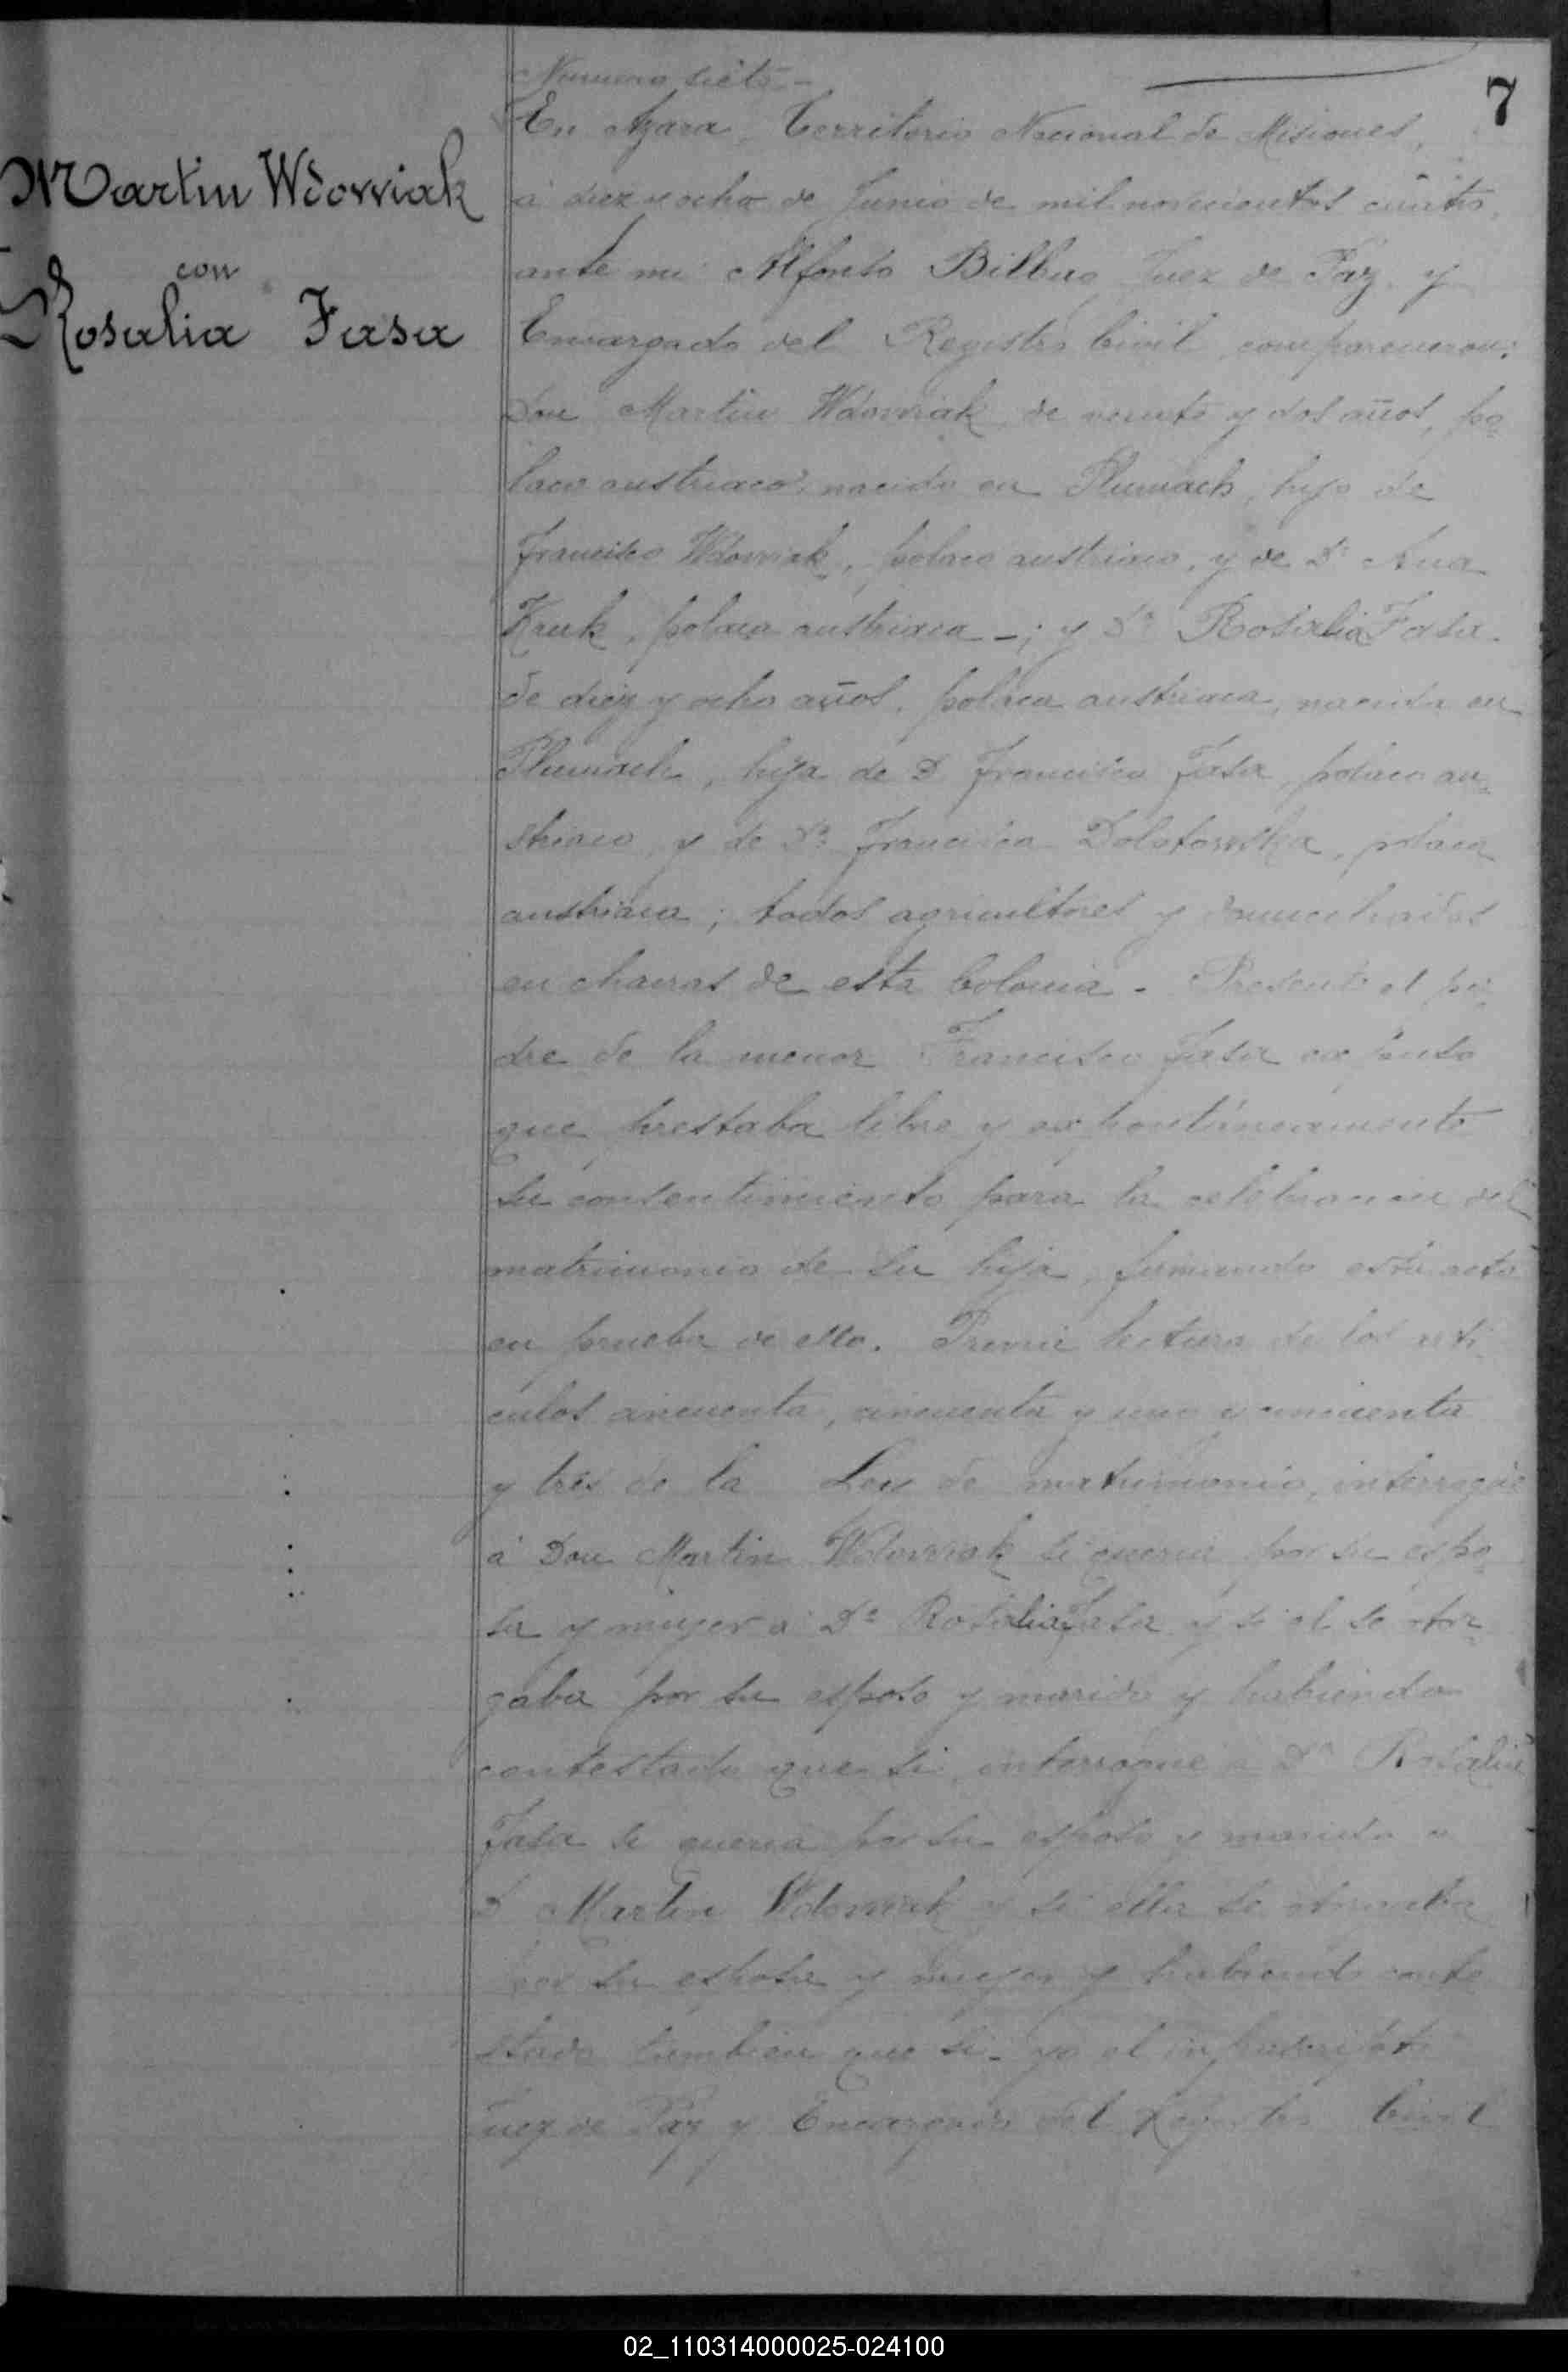 7
Martin Wdowiak
con
Rosalia Fasa
Numero siete-
En Azara, Territorio Nacional de Misiones,
á diez y ocho de Junio de mil novecientos cuatro,
ante mi Alfonso Bilbao Juez de Paz y
Encargado del Registro Civil comparecieron:
Don Martin Wdowiak de veinte y dos años, po-
laco austriaco, nacido en Plumach, hijo de
Francisco Wdowiak, polaco austriaco, y de Dª Ana
Kruk, polaca austriaca -; y Dª Rosalia Fasa.
de diez y ocho años, polaca austriaca, nacida en
Plumach, hija de D Francisco Fasa, polaco au-
striaco y de Dª Francisca Dolotowska, polaca
austriaca; todos agricultores y domiciliados
en chacras de esta Colonia. Presente el pa-
dre de la menor Francisco Fasa expuso
que prestaba libre y expontáneamente
su consentimiento para la celebracion del
matrimonio de su hija, firmando esta acta
en prueba de ello. Previa lectura de los arti-
culos cincuenta, cincuenta y uno y cincuenta
y tres de la Ley de matrimonio, interrogué
á Don Martin Wdowiak si queria por su espo-
sa y mujer a Dª Rosalia Fasa y si el se otor-
gaba por su esposo y marido y habiendo
contestado que si, interrogué a Dª Rosalia
Fasa si queria por su esposo y marido a
D Martin Wdowiak y si ella se otorgaba
por su esposa y mujer y habiendo conte
stado tambien que si - yo el infrascripto
Juez de Paz y Encargado del Registro Civil
02_110314000025-024100